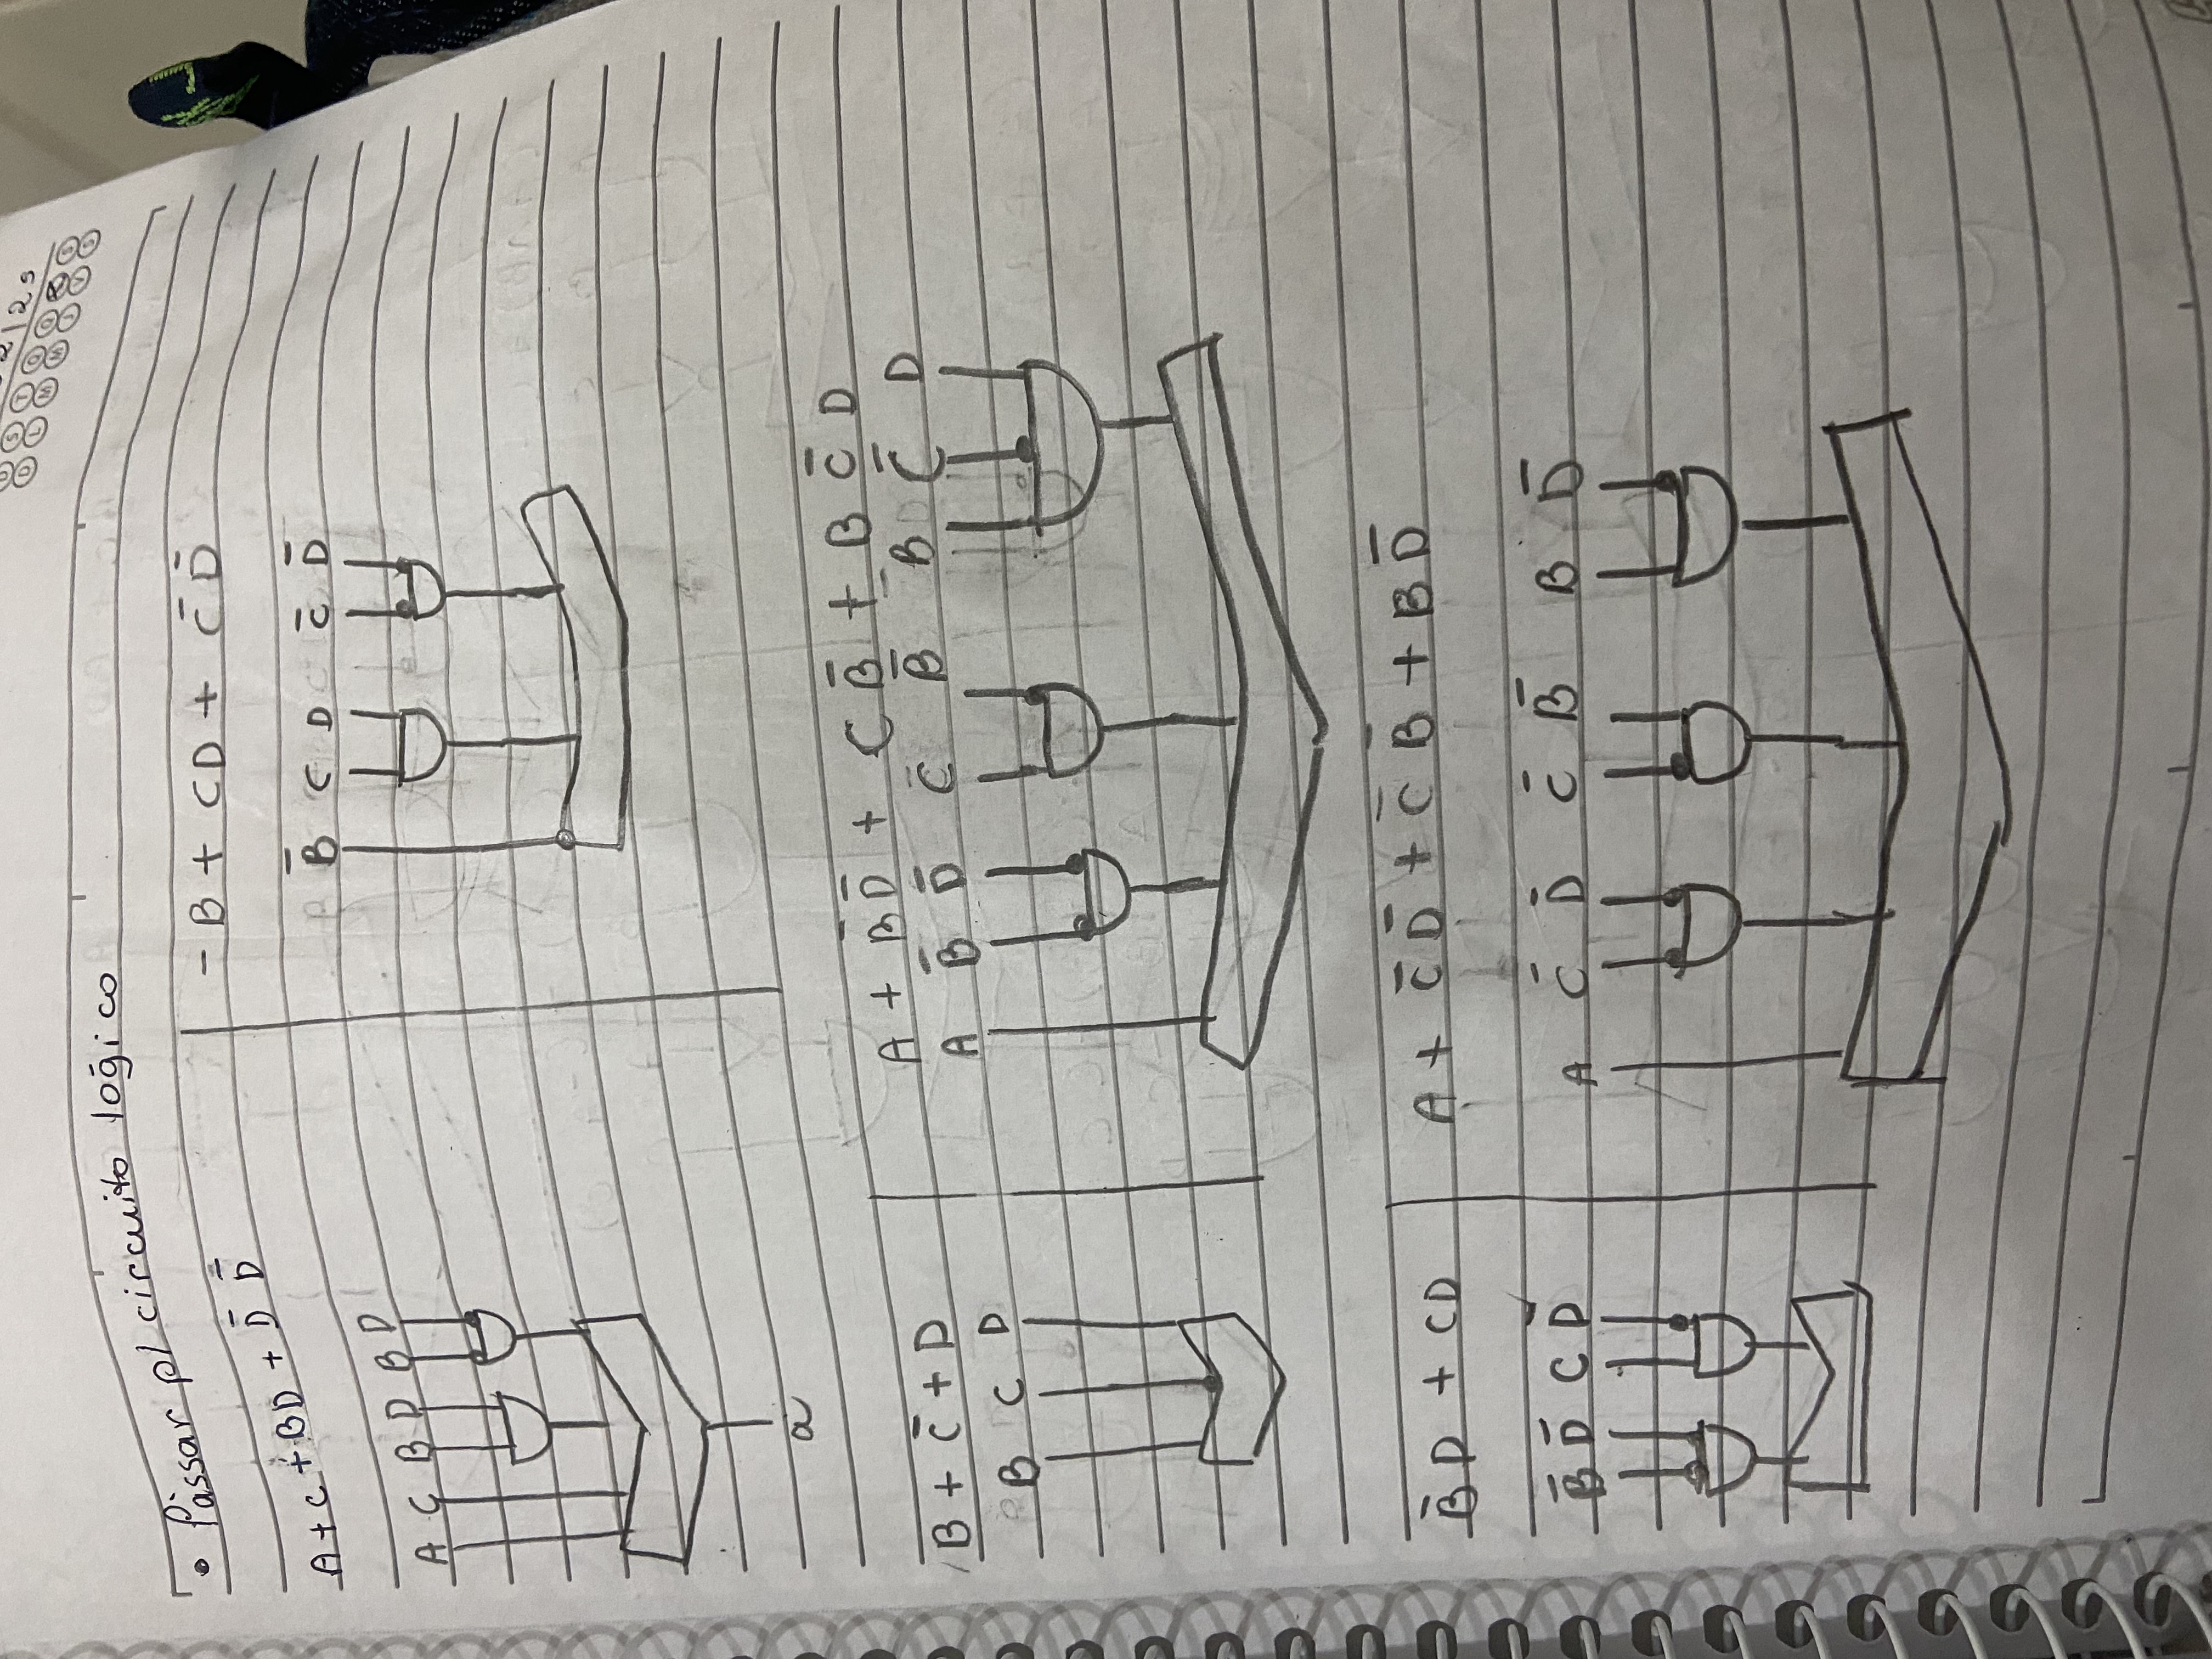 2 1 2 5
D S T Q Q S S
D L M M J V S
• Passar p/ circuito lógico
A + C + BD + D̄ D̄
A C B D B D
a
- B + CD + C̄ D̄
B̄ C D C̄ D̄
B + C̄ + D
B C D
A + B̄ D̄ + C B̄ + B C̄ D
A B̄ D̄ C̄ B̄ B C̄ D
B̄ D + CD
B̄ D̄ C D̄
A + C̄ D̄ + C̄ B̄ + B D̄
A C̄ D̄ C̄ B̄ B D̄